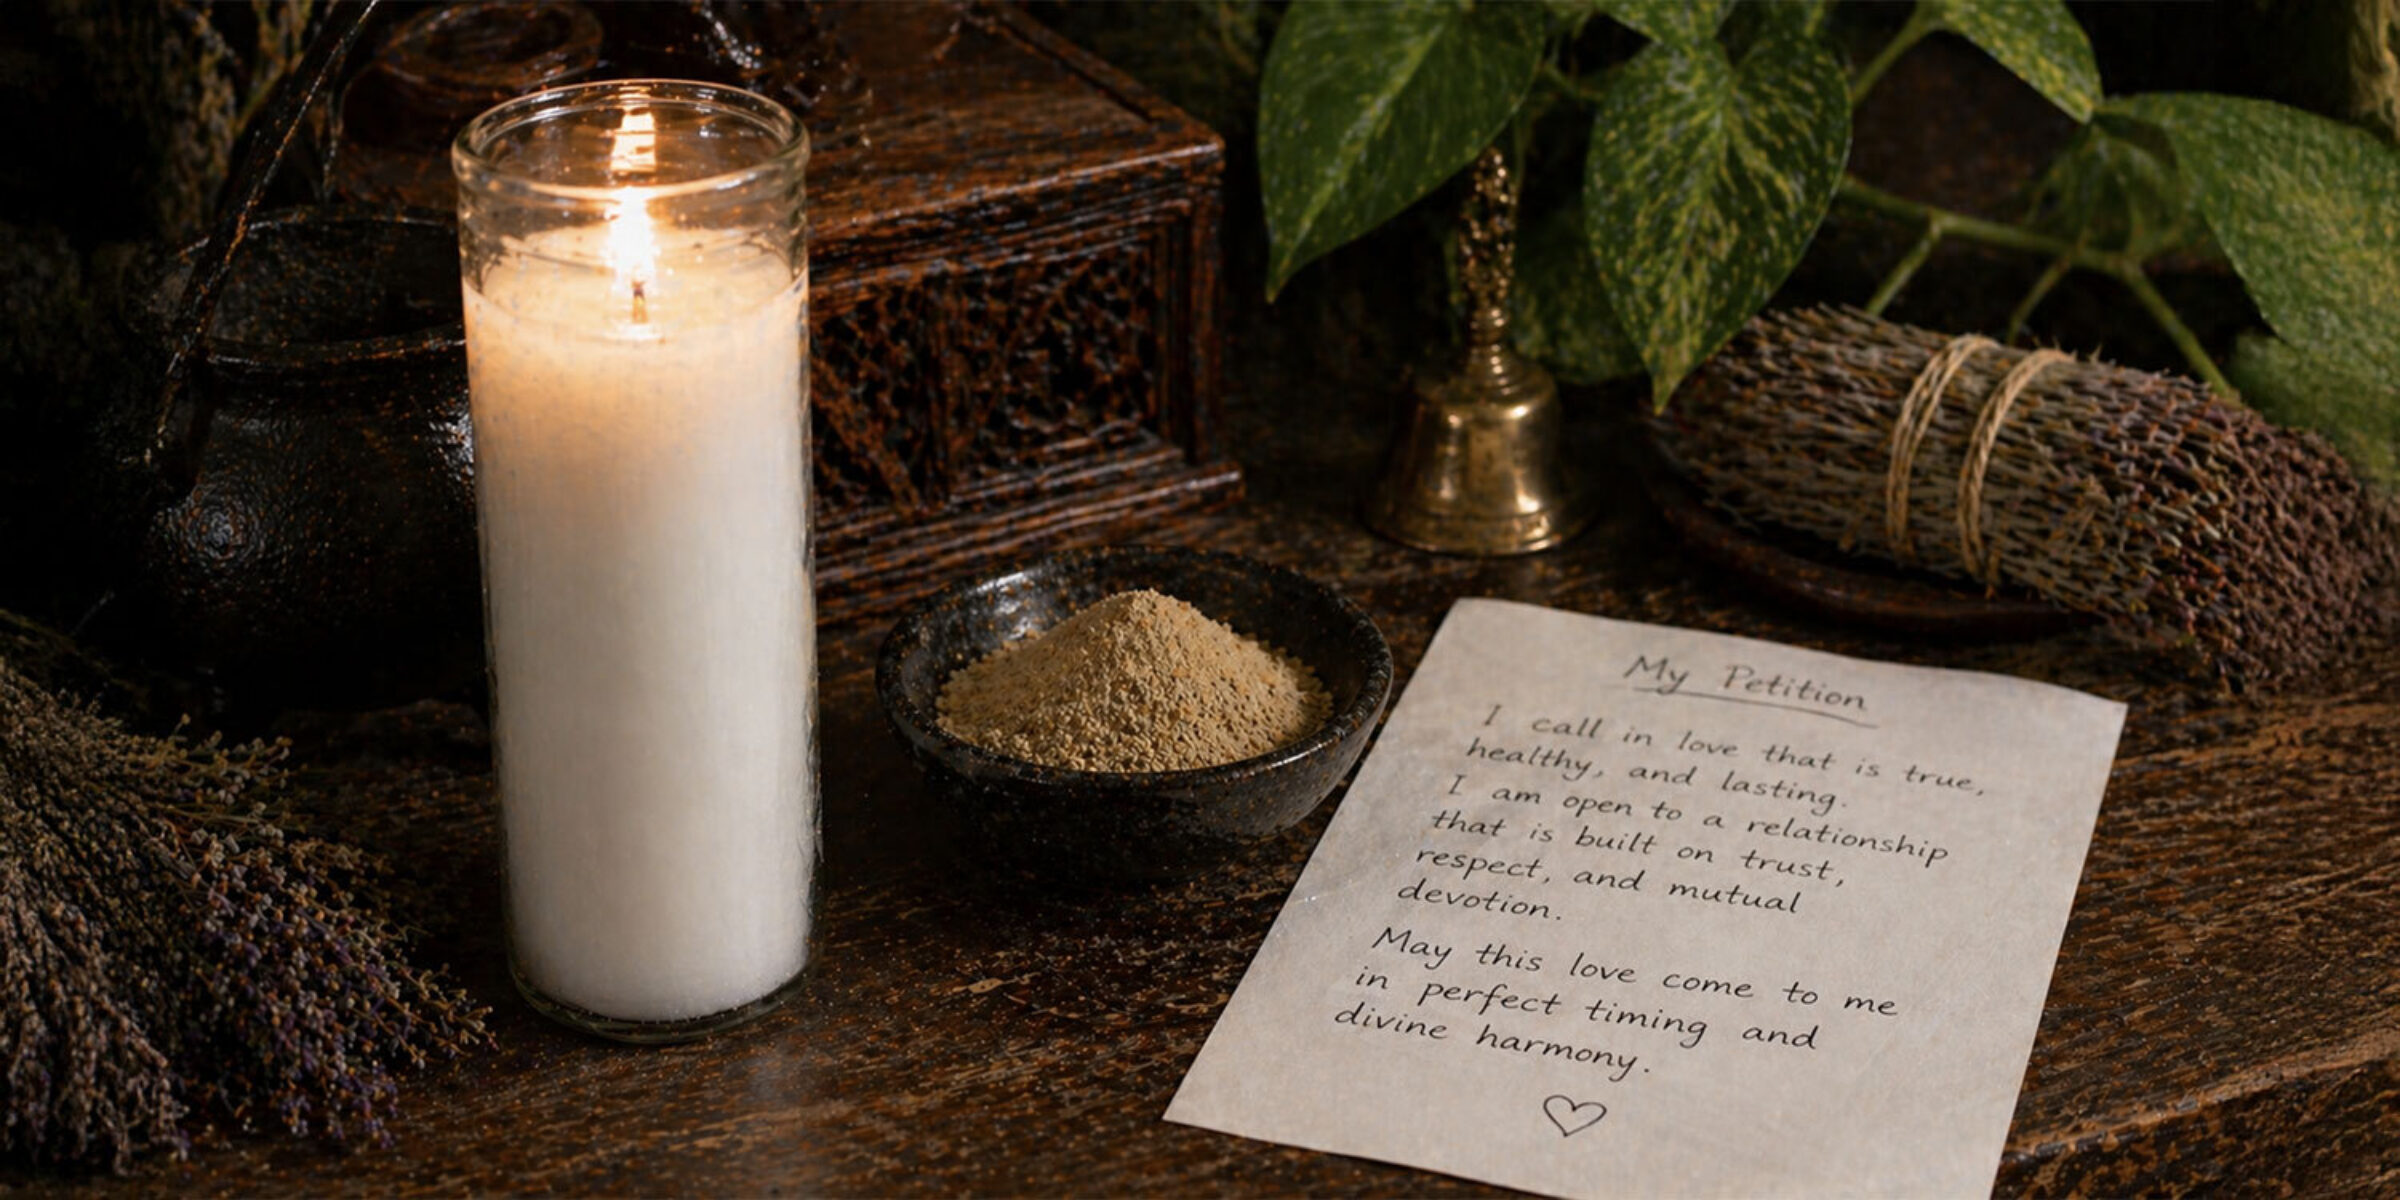 My Petition
I call in love that is true,
healthy, and lasting.
I am open to a relationship
that is built on trust,
respect, and mutual
devotion.
May this love come to me
in perfect timing and
divine harmony.